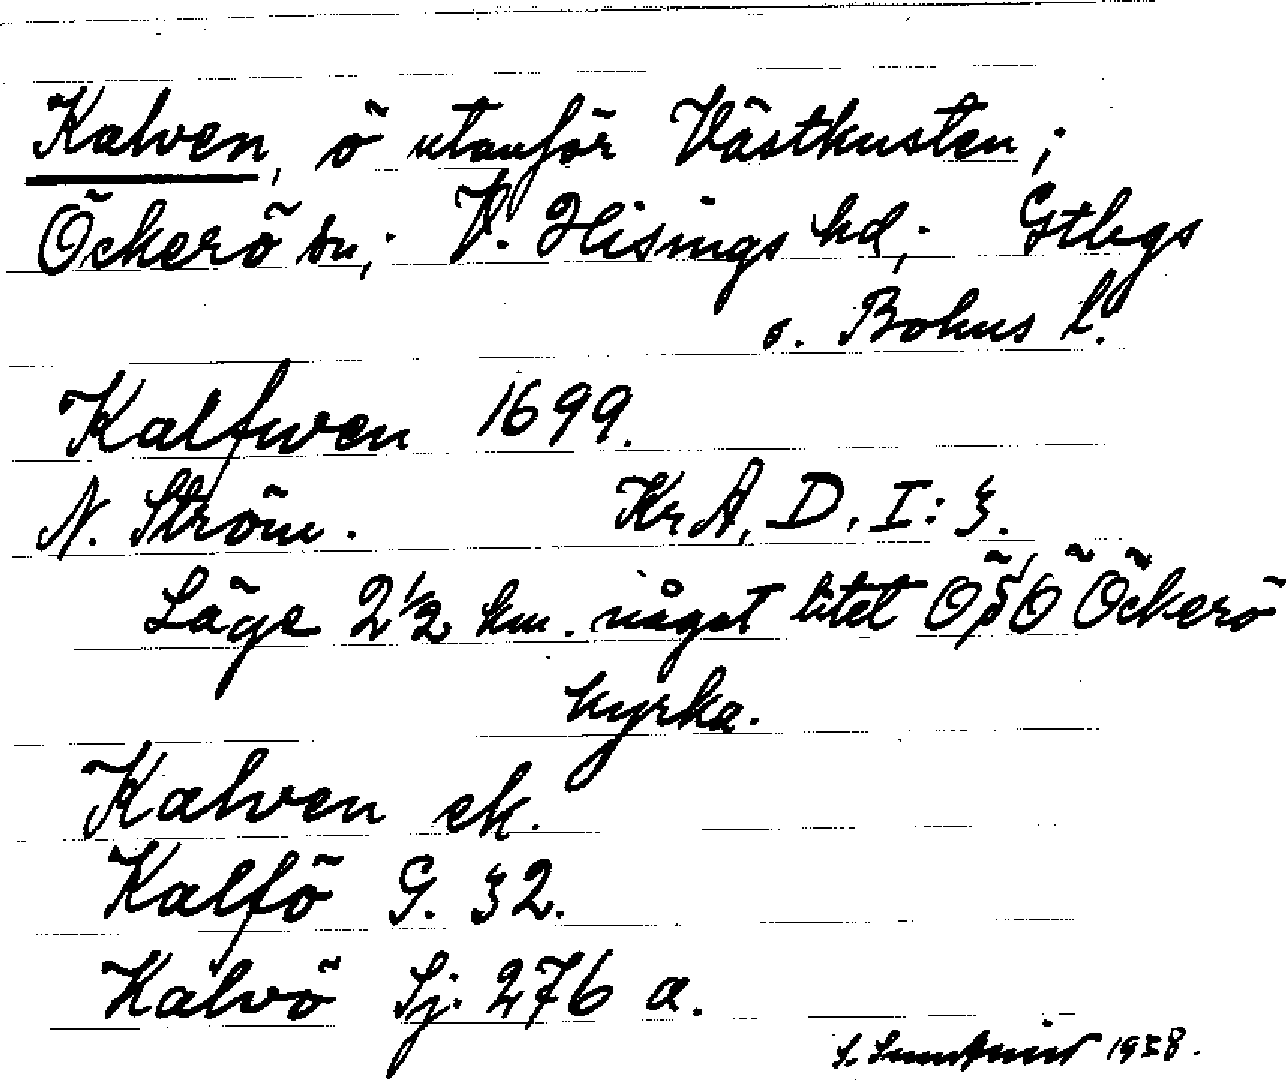 Kalven, ö utanför Västkusten;
Öckerö sn; V. Hisings hd; Gtbgs
o. Bohus l.
Kalfwen 1699.
N. Ström. KrA, D. I: 3.
Läge 2 1/2 km. något litet ÖSÖ Öckerö
kyrka.
Kalven ek.
Kalfö G. 32.
Kalvö Sj. 276 a.
S. 1938.